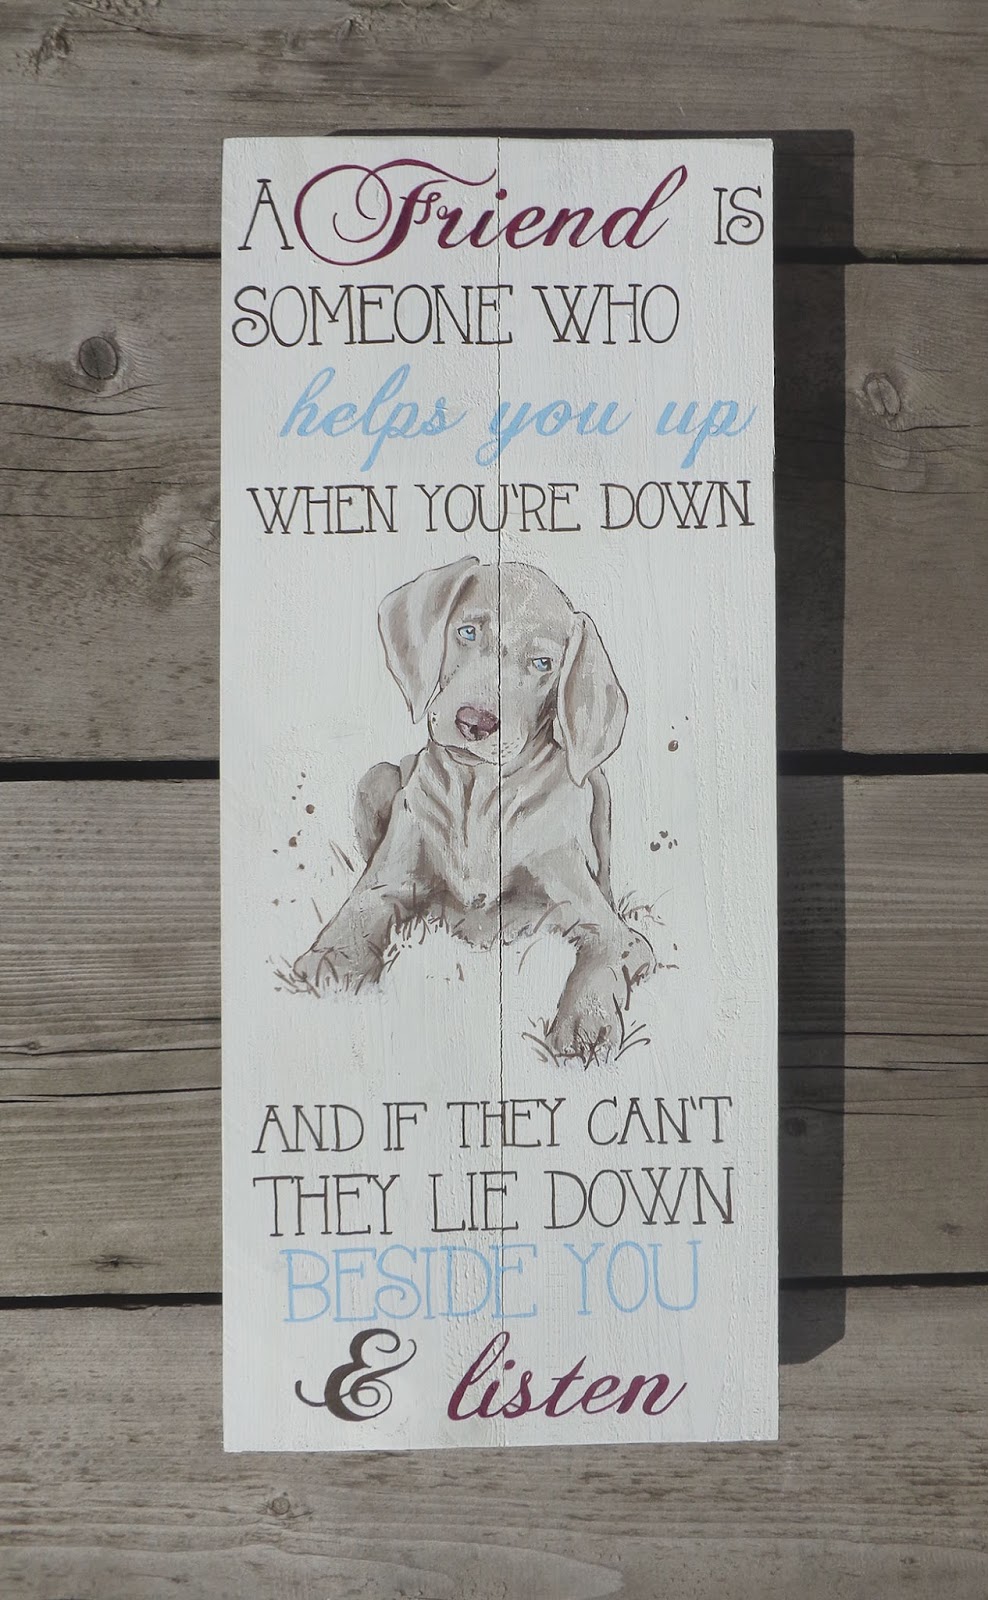 A Friend IS
SOMEONE WHO
helps you up
WHEN YOU'RE DOWN
AND IF THEY CAN'T
THEY LIE DOWN
BESIDE YOU
& listen